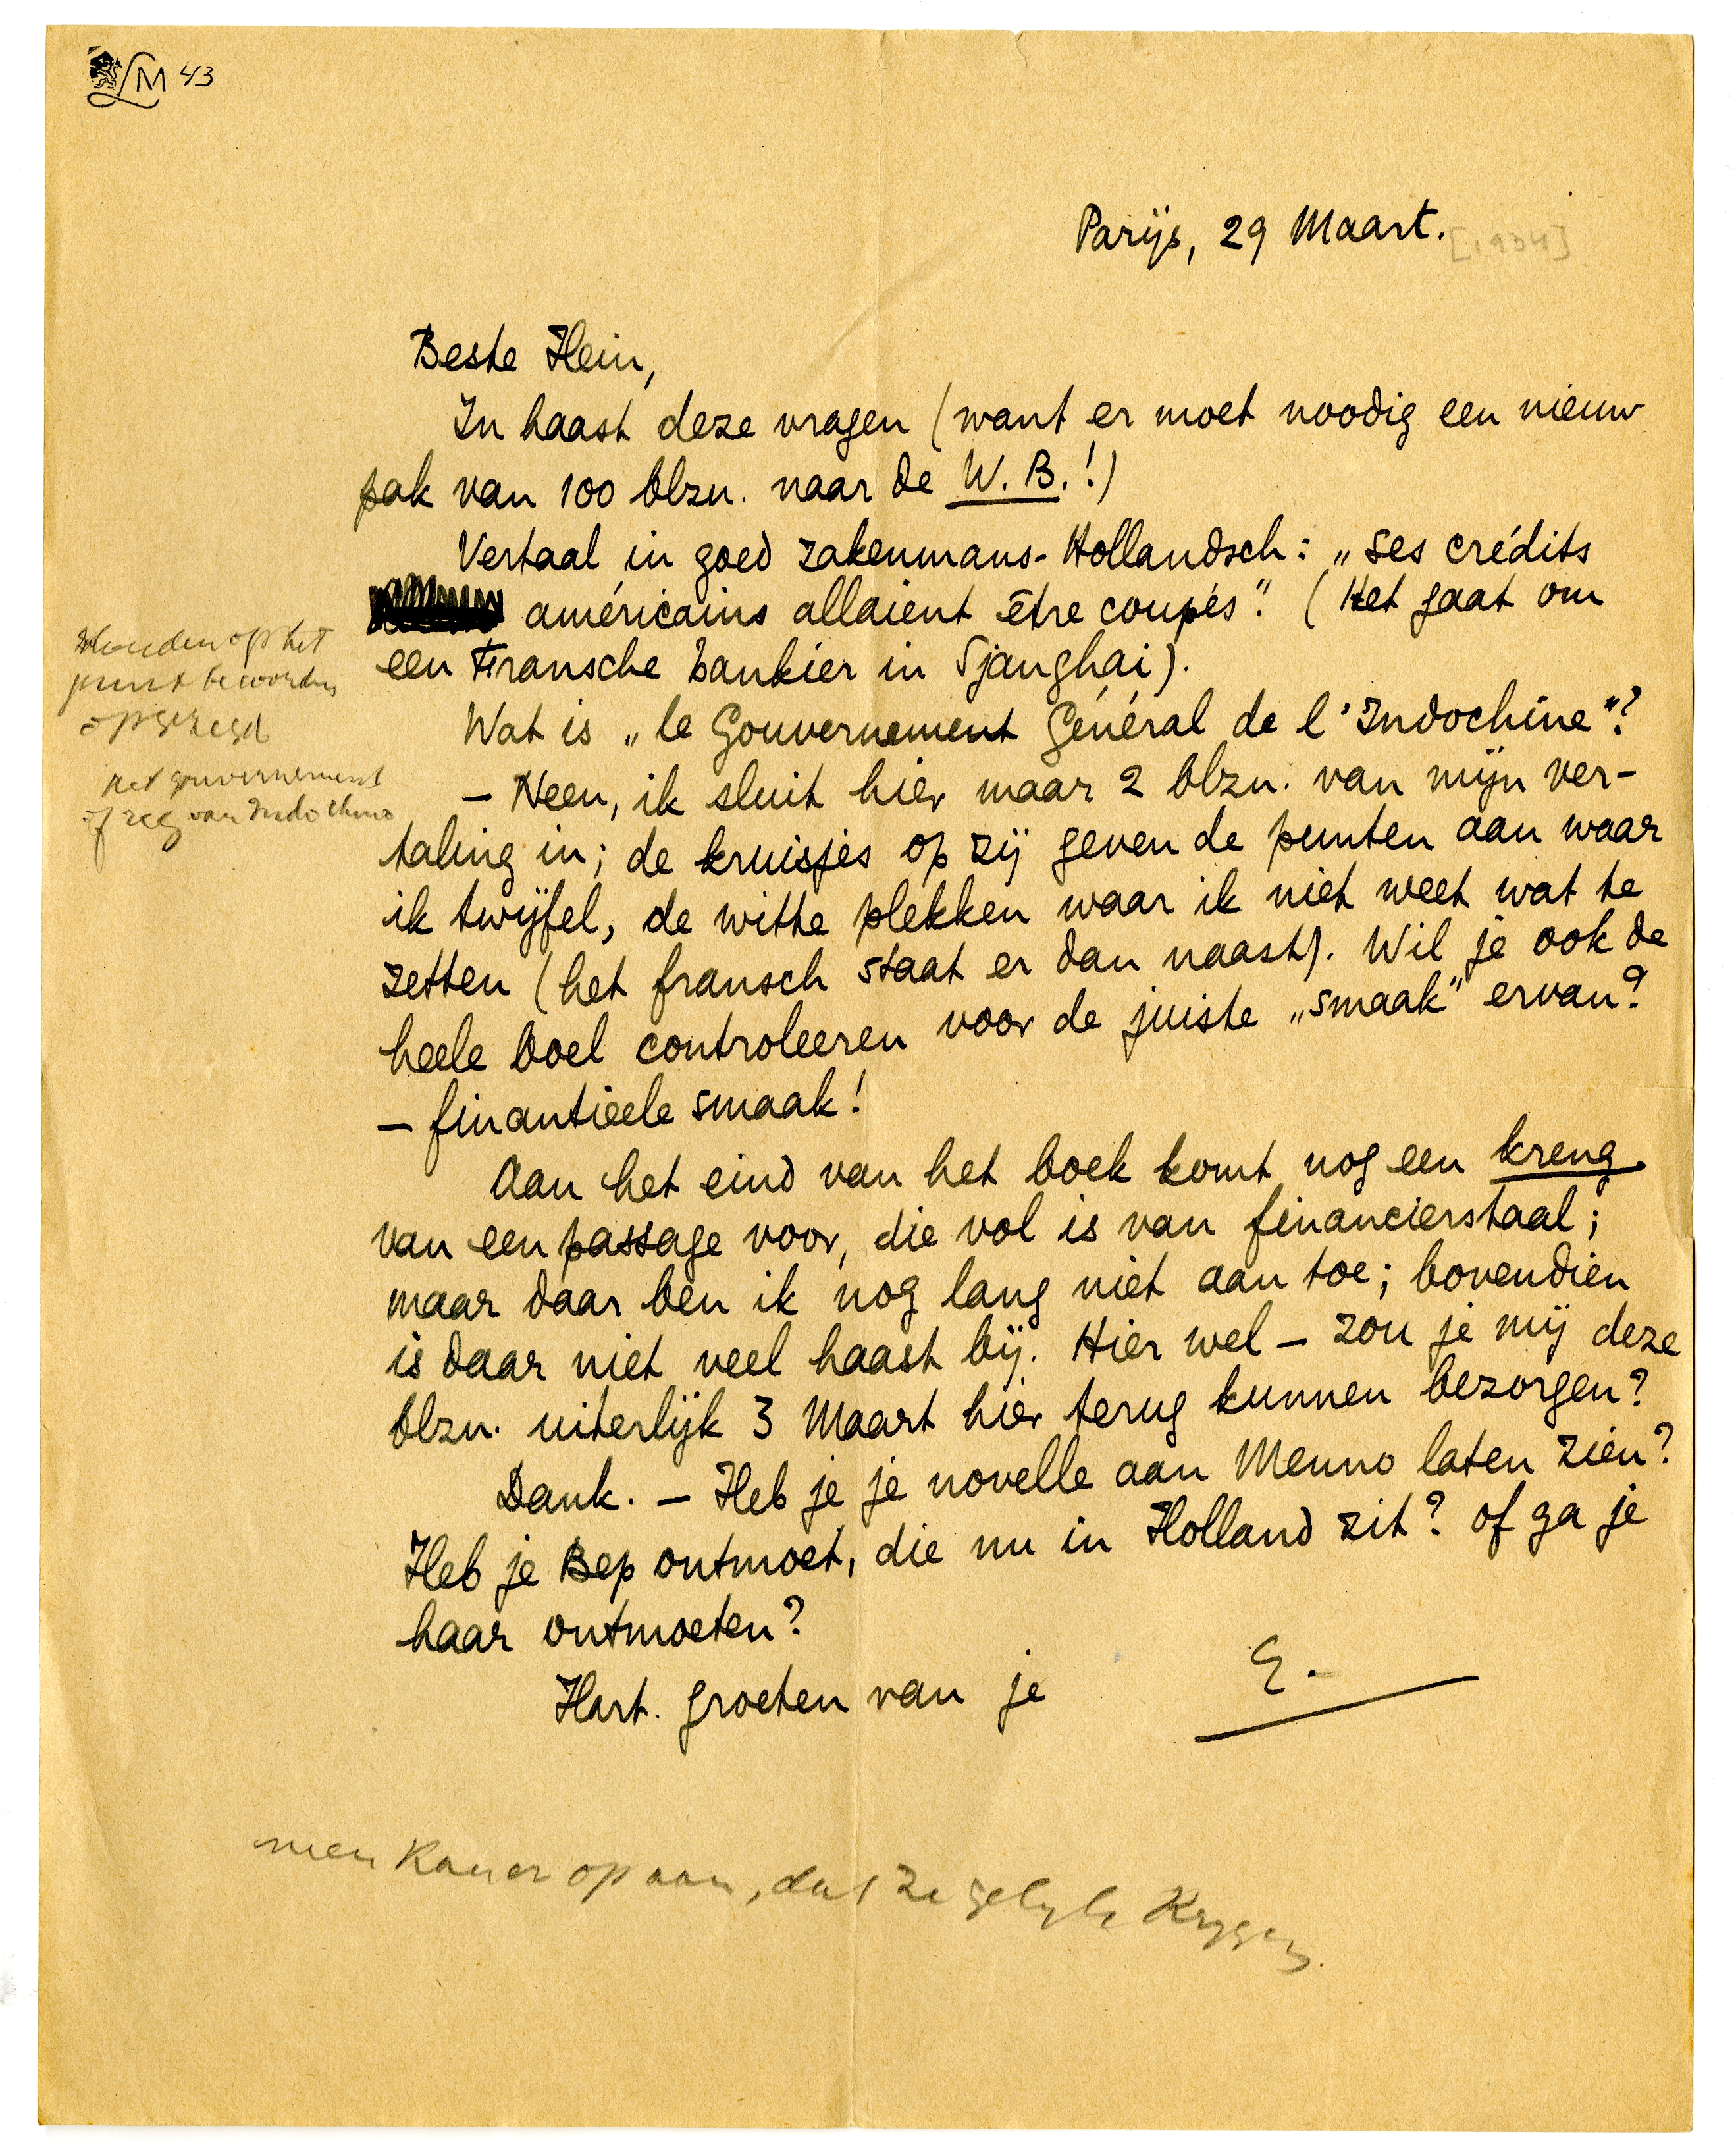 LM 43
Parijs, 29 Maart. [1934]
Beste Hein,
In haast deze vragen (want er moet noodig een nieuw
pak van 100 blzn. naar de W.B.!)
Vertaal in goed zakenmans-Hollandsch: „ses crédits
américains allaient être coupés". (Het gaat om
een Fransche bankier in Sjanghai).
Wat is „le Gouvernement Général de l'Indochine"?
— Neen, ik sluit hier maar 2 blzn. van mijn ver-
taling in; de kruisjes op zij geven de punten aan waar
ik twijfel, de witte plekken waar ik niet weet wat te
zetten (het fransch staat er dan naast). Wil je ook de
heele boel controleeren voor de juiste „smaak" ervan?
— finantieele smaak!
Aan het eind van het boek komt nog een kreng
van een passage voor, die vol is van financierstaal;
maar daar ben ik nog lang niet aan toe; bovendien
is daar niet veel haast bij. Hier wel — zou je mij deze
blzn. uiterlijk 3 Maart hier terug kunnen bezorgen?
Dank. — Heb je je novelle aan Menno laten zien?
Heb je Bep ontmoet, die nu in Holland zit? of ga je
haar ontmoeten?
Hart. groeten van je E.
zouden op het
punt te worden
opgezegd
het gouvernement
of reg van Indo China
men kan er op aan, dat ze gelijk krijgen.